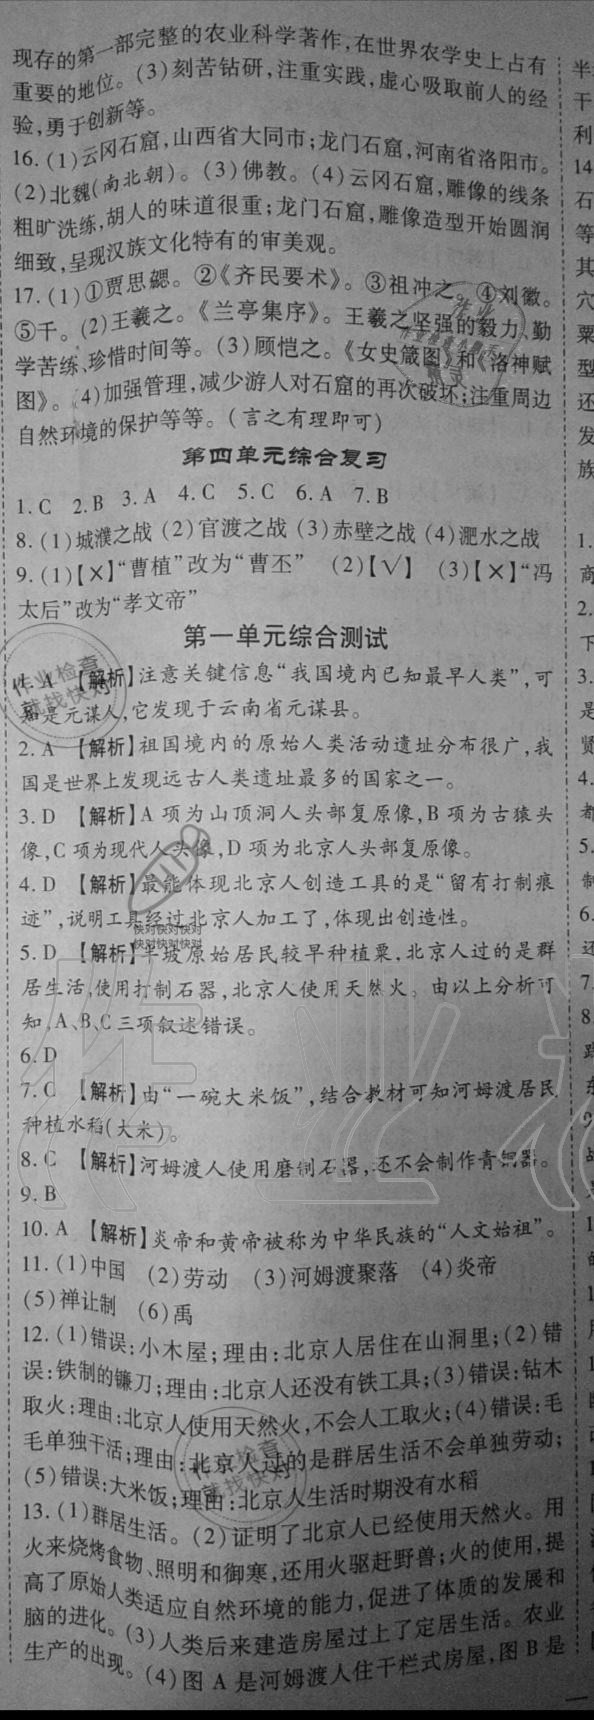 现存的第一部完整的农业科学著作,在世界农学史上占有
重要的地位。(3)刻苦钻研,注重实践,虚心吸取前人的经
验,勇于创新等。
16.(1)云冈石窟,山西省大同市;龙门石窟,河南省洛阳市。
(2)北魏(南北朝)。(3)佛教。(4)云冈石窟,雕像的线条
粗旷洗练,胡人的味道很重;龙门石窟,雕像造型开始圆润
细致,呈现汉族文化特有的审美观。
17.(1)①贾思勰。②《齐民要术》。③祖冲之。④刘徽。
⑤千。(2)王羲之。《兰亭集序》。王羲之坚强的毅力,勤
学苦练,珍惜时间等。(3)顾恺之。《女史箴图》和《洛神赋
图》。(4)加强管理,减少游人对石窟的再次破坏;注重周边
自然环境的保护等等。(言之有理即可)
第四单元综合复习
1.C 2.B 3.A 4.C 5.C 6.A 7.B
8.(1)城濮之战 (2)官渡之战 (3)赤壁之战 (4)淝水之战
9.(1)【×】“曹植”改为“曹丕” (2)【√】 (3)【×】“冯
太后”改为“孝文帝”
第一单元综合测试
1. A 【解析】注意关键信息“我国境内已知最早人类”,可
知是元谋人,它发现于云南省元谋县。
2. A 【解析】祖国境内的原始人类活动遗址分布很广,我
国是世界上发现远古人类遗址最多的国家之一。
3. D 【解析】A 项为山顶洞人头部复原像,B 项为古猿头
像,C 项为现代人头像,D 项为北京人头部复原像。
4. D 【解析】最能体现北京人创造工具的是“留有打制痕
迹”,说明工具经过北京人加工了,体现出创造性。
5. D 【解析】半坡原始居民较早种植粟,北京人过的是群
居生活,使用打制石器,北京人使用天然火。由以上分析可
知,A、B、C三项叙述错误。
6. D
7. C 【解析】由“一碗大米饭”,结合教材可知河姆渡居民
种植水稻(大米)。
8. C 【解析】河姆渡人使用磨制石器,还不会制作青铜器。
9. B
10. A 【解析】炎帝和黄帝被称为中华民族的“人文始祖”。
11.(1)中国 (2)劳动 (3)河姆渡聚落 (4)炎帝
(5)禅让制 (6)禹
12.(1)错误:小木屋;理由:北京人居住在山洞里;(2)错
误:铁制的镰刀;理由:北京人还没有铁工具;(3)错误:钻木
取火;理由:北京人使用天然火,不会人工取火;(4)错误:毛
毛单独干活;理由:北京人过的是群居生活不会单独劳动;
(5)错误:大米饭;理由:北京人生活时期没有水稻
13.(1)群居生活。(2)证明了北京人已经使用天然火。用
火来烧烤食物、照明和御寒,还用火驱赶野兽;火的使用,提
高了原始人类适应自然环境的能力,促进了体质的发展和
脑的进化。(3)人类后来建造房屋过上了定居生活。农业
生产的出现。(4)图 A 是河姆渡人住干栏式房屋,图 B 是